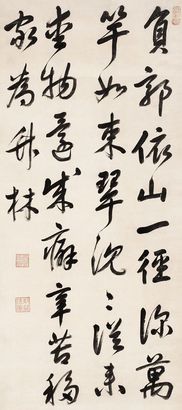 負郭依山一徑深萬
竿如束翠沉〻從来
愛物成癖辛苦移
家為竹林